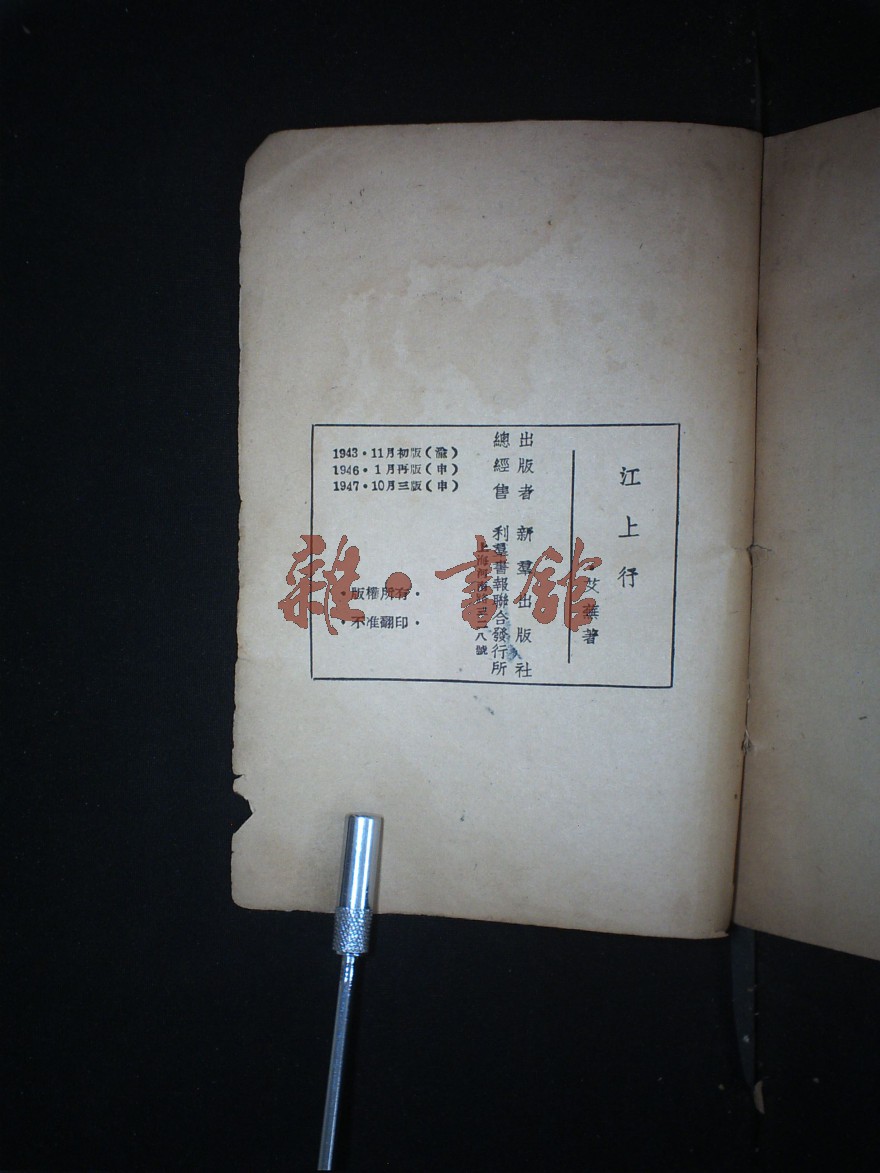 江上行
艾蕪著
出版者 新羣出版社
總經售 利羣書報聯合發行所
上海河南路三二八號
1943·11月初版(渝)
1946·1月再版(申)
1947·10月三版(申)
·版權所有·
·不准翻印·
雜·書館